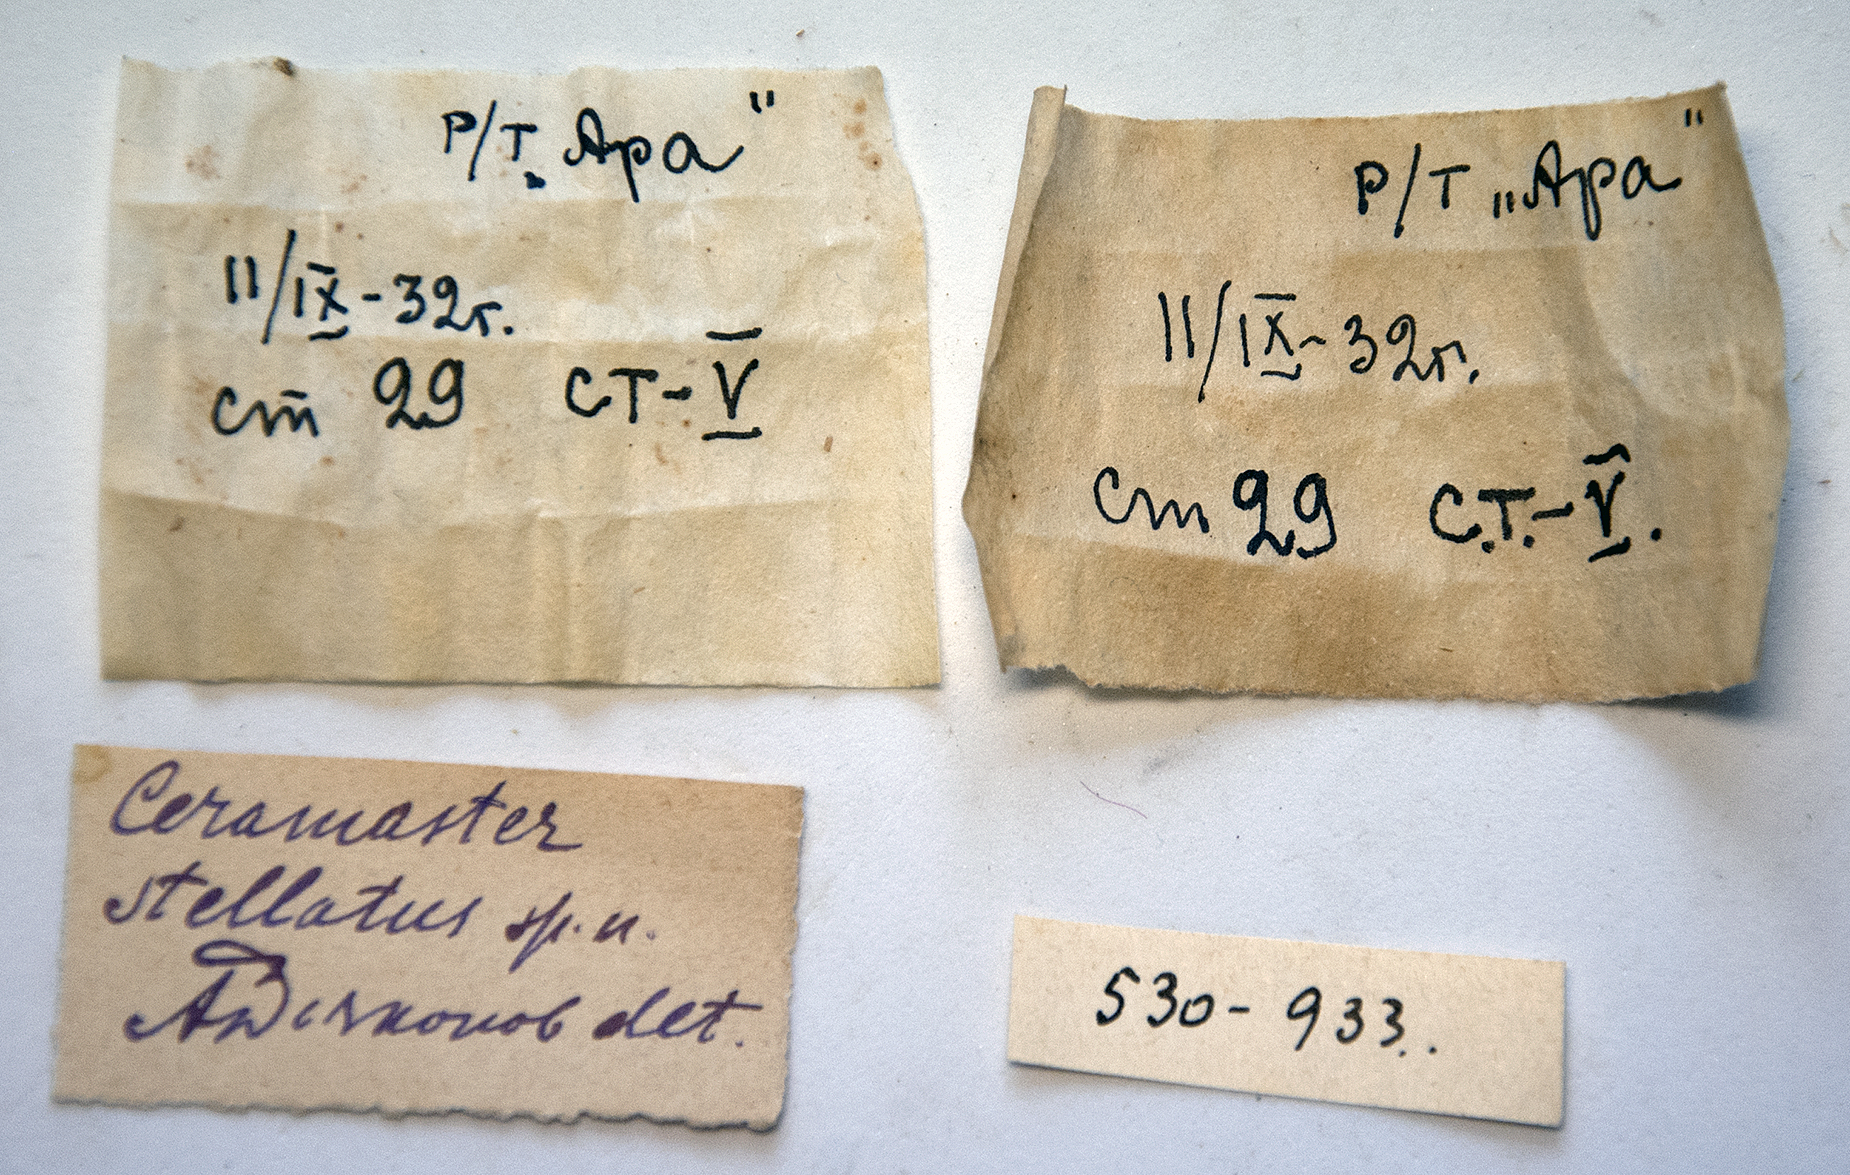 Р/Т „Ара"
11/IX-32г.
ст 29 СТ-V
Р/Т „Ара"
11/IX-32г.
ст 29 С.Т.-V.
Ceramaster
stellatus sp. n.
АДьяконов det.
530-933..